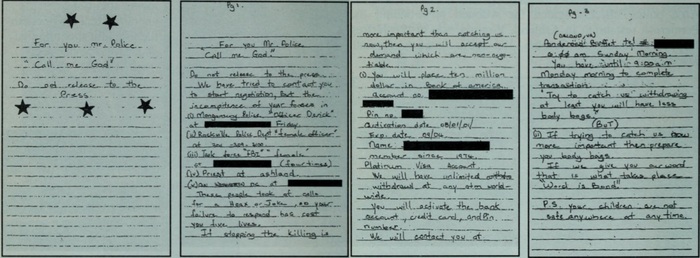 For you mr. Police
"Call me God."
Do not release to the
Press.
Pg 1.
For you Mr. Police
"Call me God."
Do not release to the press.
We have tried to contact you
to start negotiation, But the
incompetence of your forces in
(i) Montgomery Police "Officer Derick"
at Friday
(ii) Rockville Police Dept. "female officer"
at
(iii) Task force "FBI" "female"
at (four times)
(iv) Priest at ashland
(v) at
These people took at calls
for a Hoax or Joke, so your
failure to respond has cost
you five lives.
If stopping the killing is
Pg 2.
more important than catching us
now, then you will accept our
demand which are non-nego-
tiable.
(i) You will place ten million
dollar in Bank of america
account no.
Pin no.
Activation date 08/01/01
Exp. date 09/04
Name:
member since 1974.
Platinum Visa Account.
We will have unlimited
withdrawl at any atm world-
wide.
You will activate the bank
account, credit card, and Pin
number.
We will contact you at
Pg - 3
Ponderosa Buffet tel #
am Sunday Morning.
You have until 9:00 a.m
Monday morning to complete
transaction.
"Try to catch us" withdrawing
at least you will have less
body bags.
(BuT)
(ii) If trying to catch us now
more important then prepare
you body bags.
If we give you our word
that is what takes place
"Word is Bond."
P.S. your children are not
safe anywhere at any time.